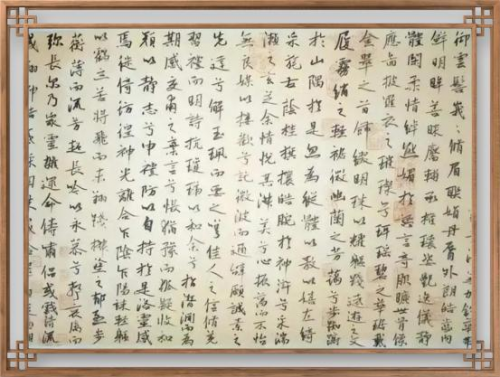 御雲髻峩峩脩眉聯娟丹脣外朗皓齒内
鮮明眸善睞靨輔承權瓌姿艷逸儀靜
體閑柔情綽態媚於語言奇服曠世骨像
應圖披羅衣之璀璨兮珥瑤碧之華琚戴
金翠之首飾綴明珠以耀軀踐遠遊之文
履霧綃之輕裾微幽蘭之芳藹兮步踟躕
於山隅於是忽焉縱體以敖以嬉左倚
采旄右蔭桂旗攘皓腕於神滸兮采湍
瀨之玄芝余情悅其淑美兮心振蕩而不怡
無良媒以接歡兮託微波而通辭願誠素之
先達兮解玉珮而要之嗟佳人之信脩羌
習禮而明詩抗瓊珶以和余兮指潛淵而爲
期感交甫之棄言兮悵猶豫而狐疑收和
顏以静志兮申禮防以自持於是洛靈感
焉徙倚彷徨神光離合乍陰乍陽竦輕軀
以鶴立若將飛而未翔踐椒塗之郁烈步
蘅薄而流芳超長吟以永慕兮聲哀厲而
彌長爾乃衆靈雜遝命儔嘯侶或戲清流